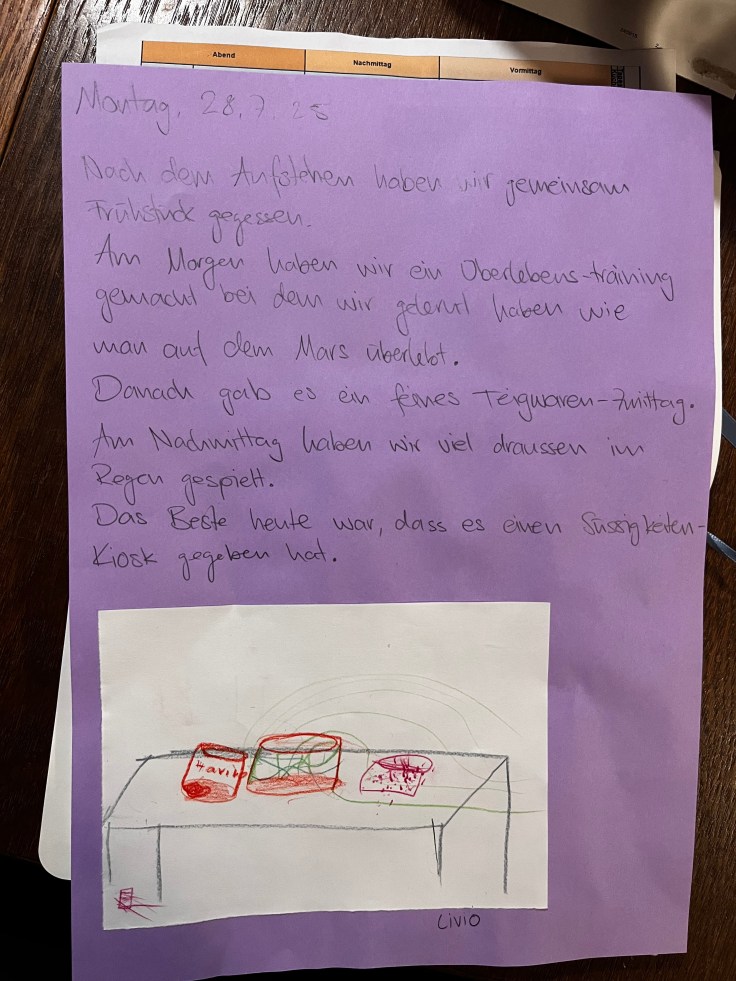 Abend
Nachmittag
Vormittag
Montag, 28.7.25
Nach dem Aufstehen haben wir gemeinsam
Frühstück gegessen.
Am Morgen haben wir ein Überlebens-training
gemacht bei dem wir gelernt haben wie
man auf dem Mars überlebt.
Danach gab es ein feines Teigwaren-Zmittag.
Am Nachmittag haben wir viel draussen im
Regen gespielt.
Das Beste heute war, dass es einen Süssigkeiten-
Kiosk gegeben hat.
Haribo
Livio